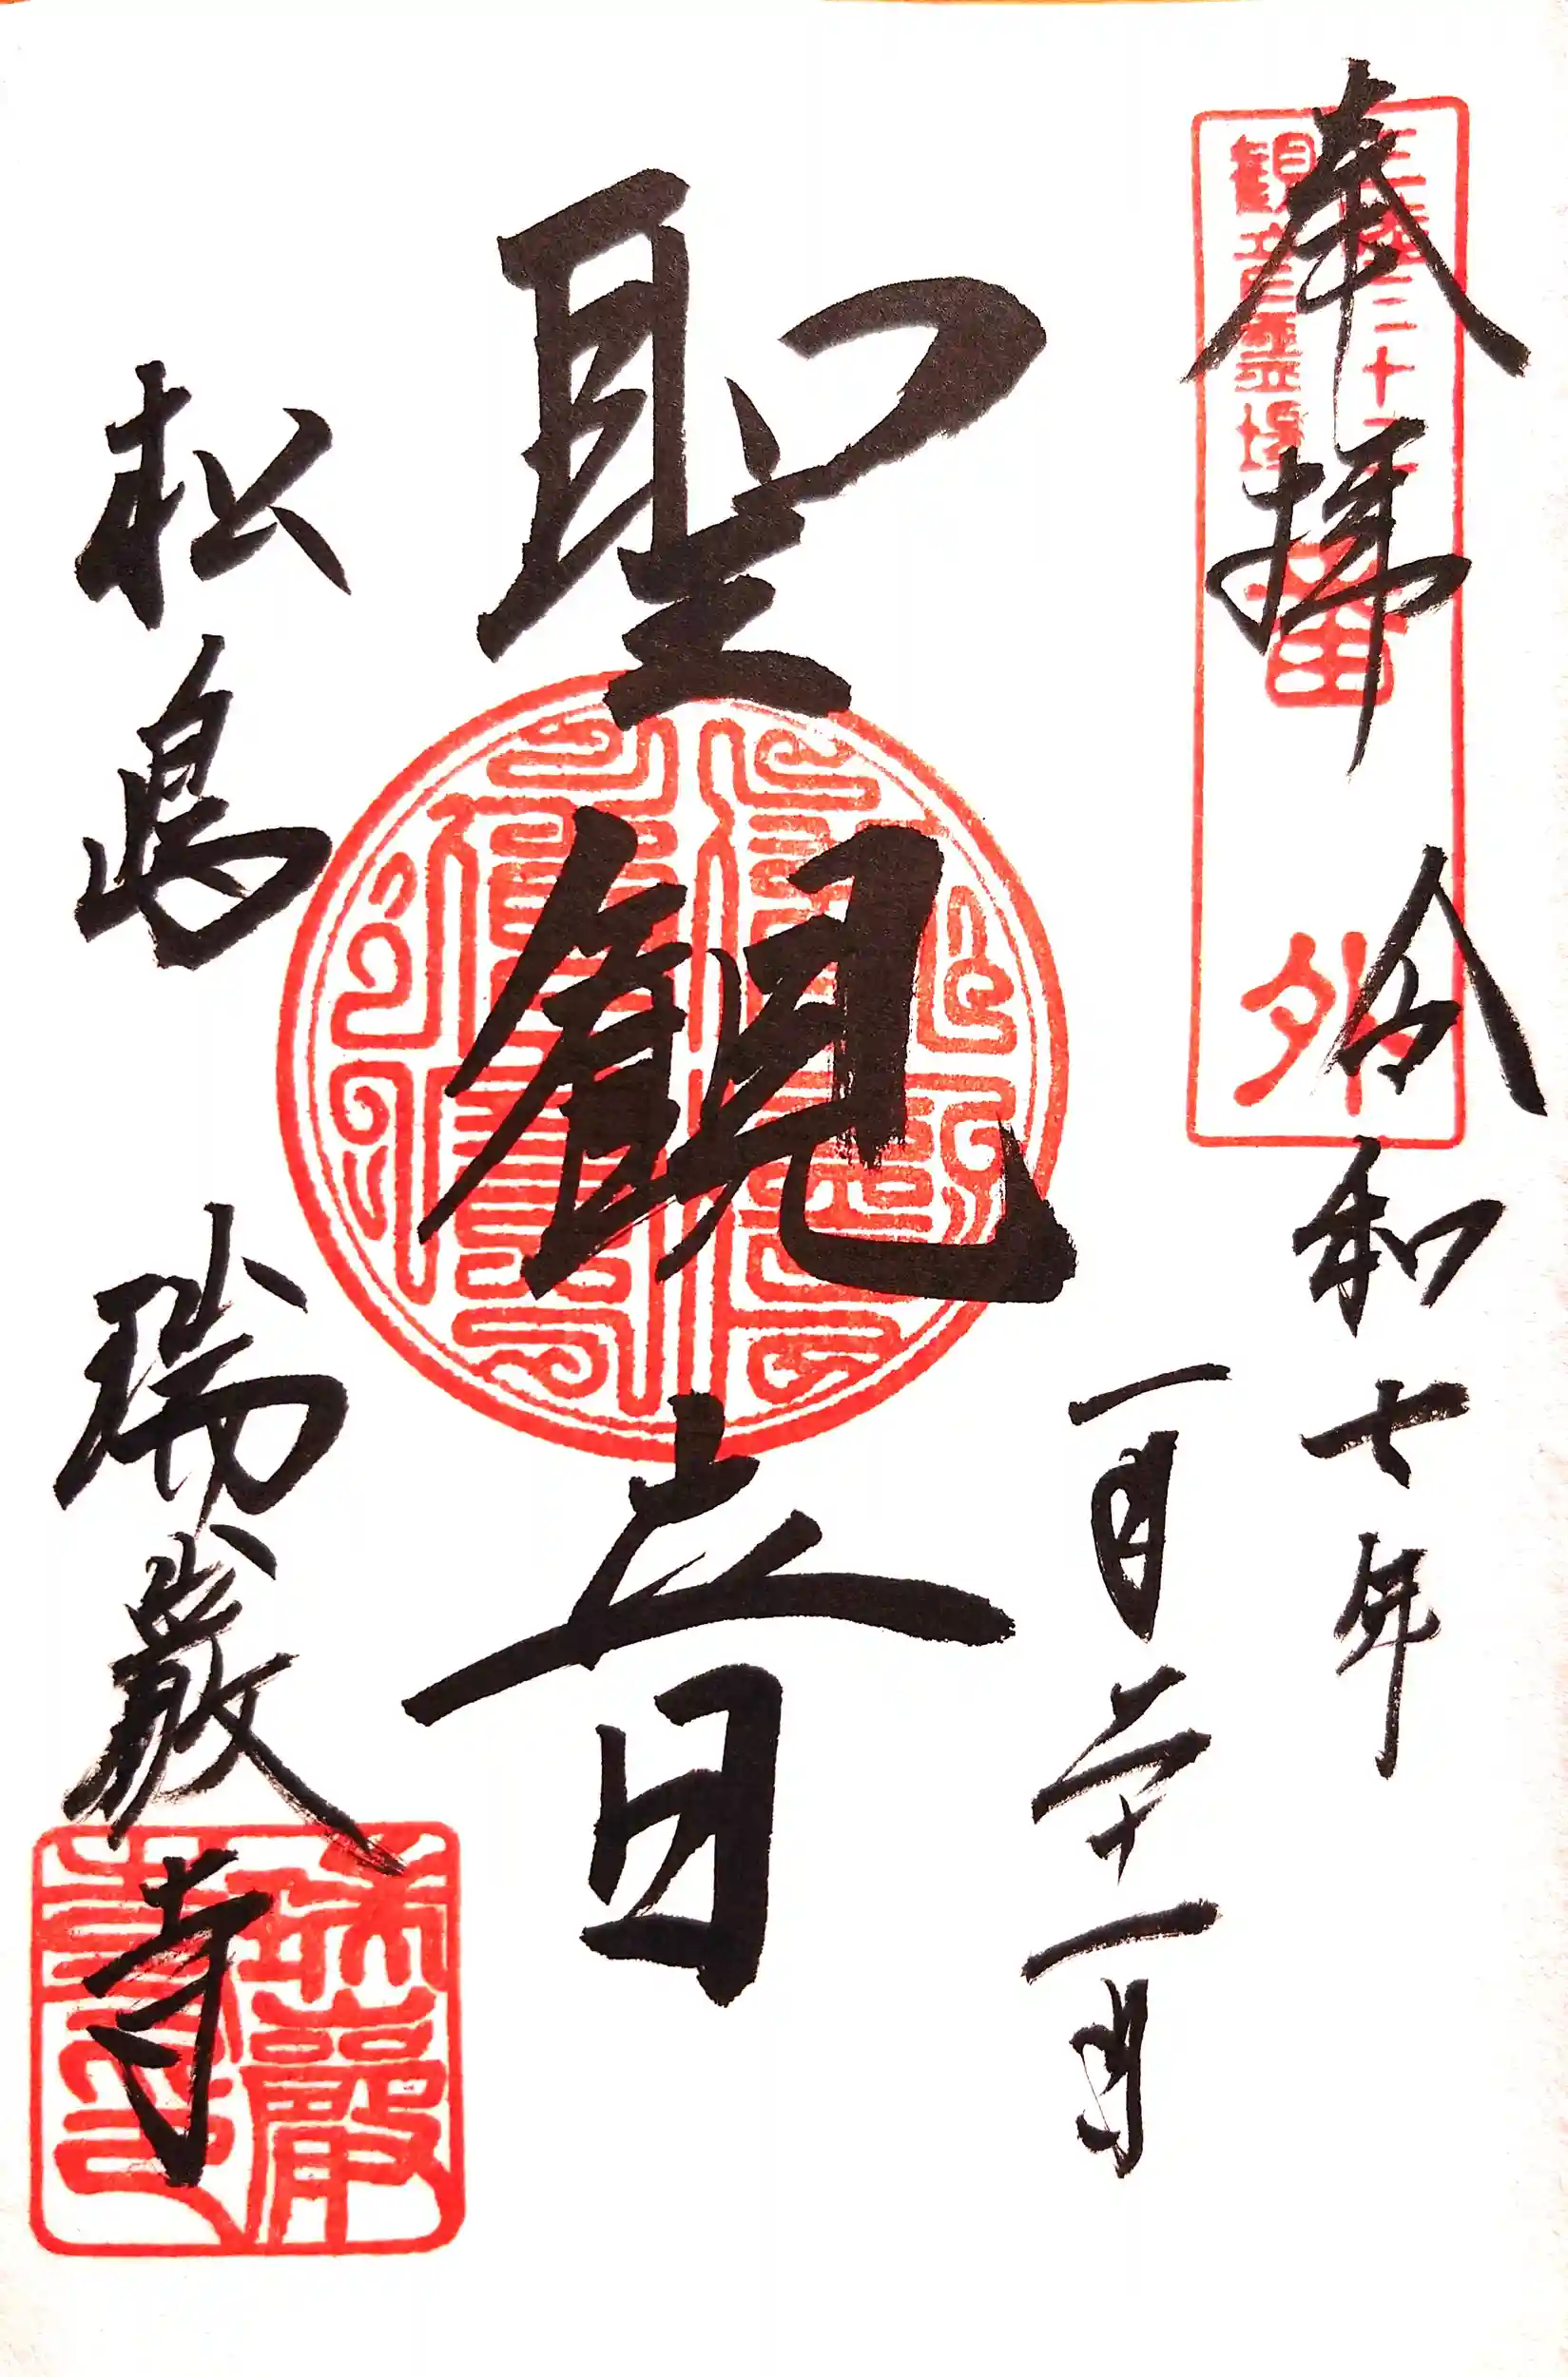 奉拝
令和七年
一月二十一日
聖観音
松島
瑞巌寺
三陸三十三
観音霊場
番外